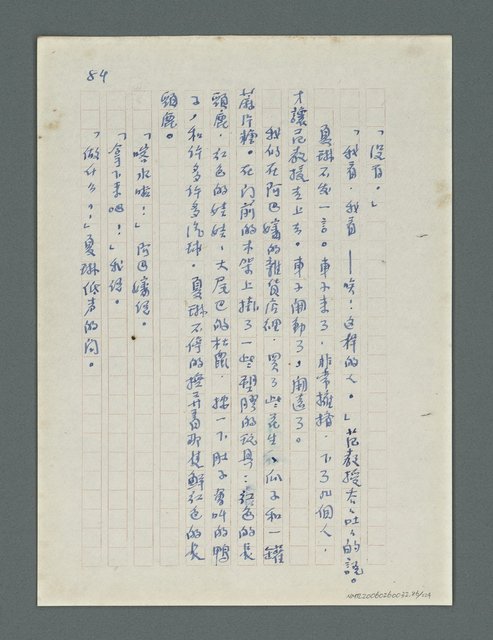 84
「没有。」
「我看，我看——唉！這样的人。」范教授吞吞吐吐的說。
夏琳不发一言。車子来了，非常擁擠，下了几個人，
才讓范教授走上去。車子開動了，開遠了。
我们在阿巴嬸的雜貨店裡，買了些花生、瓜子和一罐
蔴片糖。在门前的木架上掛了一些塑膠的玩具：紅色的長
頸鹿，紅色的娃娃，大尾巴的松鼠，按一下肚子會叫的鴨
子，和许多许多汽球。夏琳不停的撫弄着那隻鮮紅色的長
頸鹿。
「喀水啦！」阿巴嬸说。
「拿下来吧！」我说。
「做什么？」夏琳低声的问。